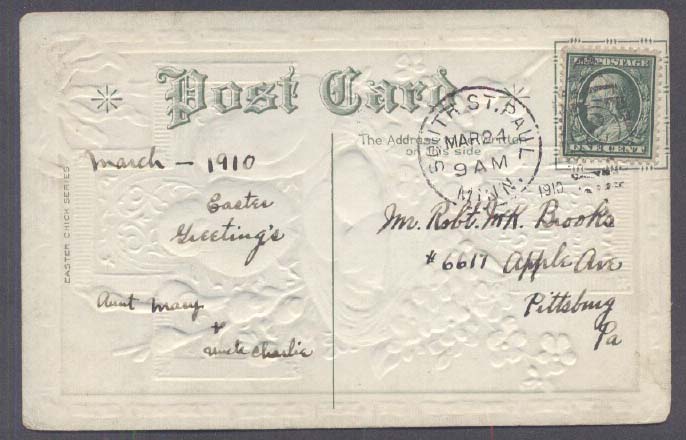 Post Card
The Address
on this side
EASTER CHICK SERIES
SOUTH ST. PAUL
MAR 24
9 AM
MINN.
1910
POSTAGE
ONE CENT
March - 1910
Easter
Greeting's
Aunt Mary
+
Uncle Charlie
Mr. Robt. McK. Brooks
# 6617 Apple Ave
Pittsburg
Pa